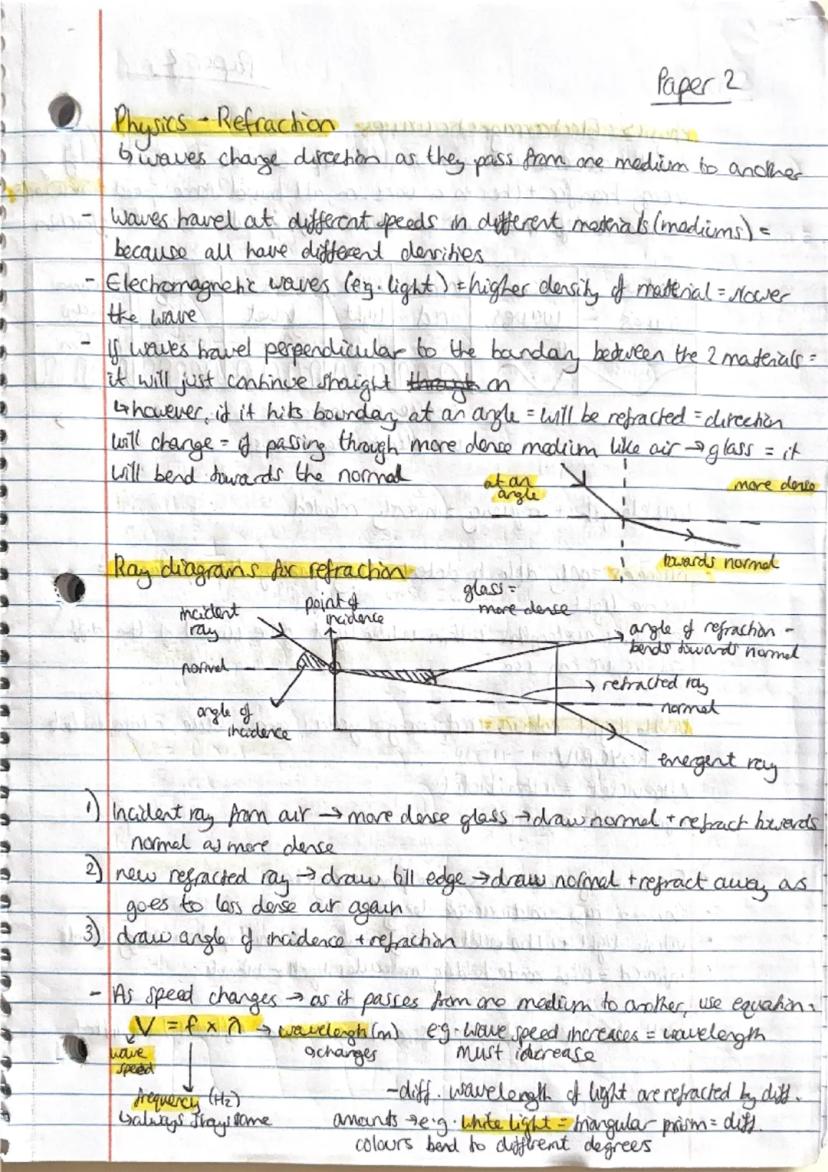 Paper 2
Physics - Refraction
↳ waves change direction as they pass from one medium to another
- Waves travel at different speeds in different materials (mediums) =
because all have different densities
- Electromagnetic waves (eg. light) = higher density of material = slower
the wave
- If waves travel perpendicular to the boundary between the 2 materials =
it will just continue straight through on
↳ however, if it hits boundary at an angle = will be refracted = direction
will change = if passing through more dense medium like air → glass = it
will bend towards the normal
at an
angle
more dense
towards normal
Ray diagrams for refraction
incident
ray
point of
incidence
glass =
more dense
angle of refraction -
bends towards normal
normal
refracted ray
normal
angle of
incidence
emergent ray
1) Incident ray from air → more dense glass → draw normal + refract towards
normal as more dense
2) new refracted ray → draw till edge → draw normal + refract away as
goes to less dense air again
3) draw angle of incidence + refraction
- As speed changes → as it passes from one medium to another, use equation =
V = f × λ → wavelength (m) eg. wave speed increases = wavelength
wave
speed
changes
must increase
frequency (Hz)
↳ always stays same
- diff. wavelength of light are refracted by diff.
amounts → e.g. white light = triangular prism = diff.
colours bend to different degrees